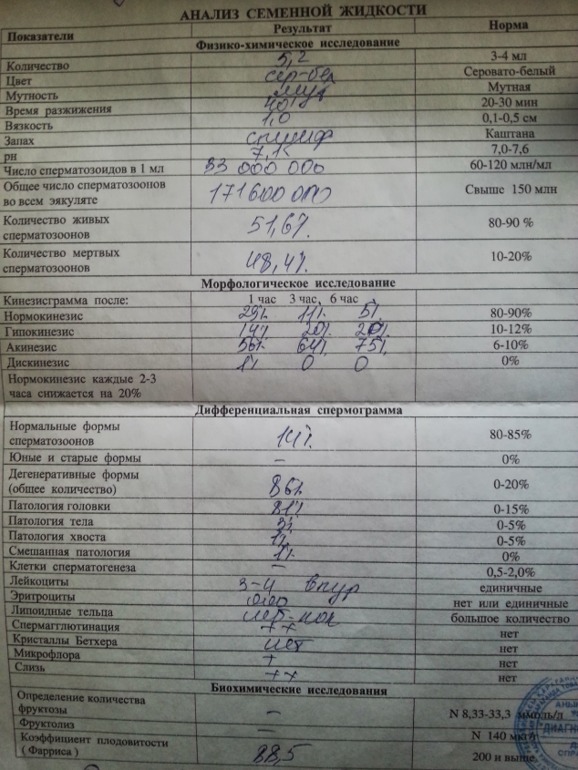 АНАЛИЗ СЕМЕННОЙ ЖИДКОСТИ
Показатели Результат Норма
Физико-химическое исследование
Количество 5,2 3-4 мл
Цвет сер-бел Серовато-белый
Мутность мут Мутная
Время разжижения 40' 20-30 мин
Вязкость 1,0 0,1-0,5 см
Запах специф Каштана
рн 7,0-7,6
Число сперматозоидов в 1 мл 33 000 000 60-120 млн/мл
Общее число сперматозоонов
во всем эякуляте 171600 000 Свыше 150 млн
Количество живых
сперматозоонов 51,6% 80-90 %
Количество мертвых
сперматозоонов 48,4% 10-20%
Морфологическое исследование
Кинезисграмма после: 1 час 3 час, 6 час
Нормокинезис 29% 11% 5% 80-90%
Гипокинезис 14% 20% 20% 10-12%
Акинезис 56% 64% 75% 6-10%
Дискинезис 1% 0 0 0%
Нормокинезис каждые 2-3
часа снижается на 20%
Дифференциальная спермограмма
Нормальные формы
сперматозоонов 14% 80-85%
Юные и старые формы – 0%
Дегенеративные формы
(общее количество) 86% 0-20%
Патология головки 81% 0-15%
Патология тела 3% 0-5%
Патология хвоста 1% 0-5%
Смешанная патология 1% 0%
Клетки сперматогенеза – 0,5-2,0%
Лейкоциты 3-4 в п/зр единичные
Эритроциты нет или единичные
Липоидные тельца большое количество
Спермагглютинация ++ нет
Кристаллы Бетхера нет нет
Микрофлора + нет
Слизь ++ нет
Биохимические исследования
Определение количества
фруктозы – N 8,33-33,3 ммоль/л
Фруктолиз – N 140 мкг/
Коэффициент плодовитости
( Фарриса ) 88,5 200 и выше